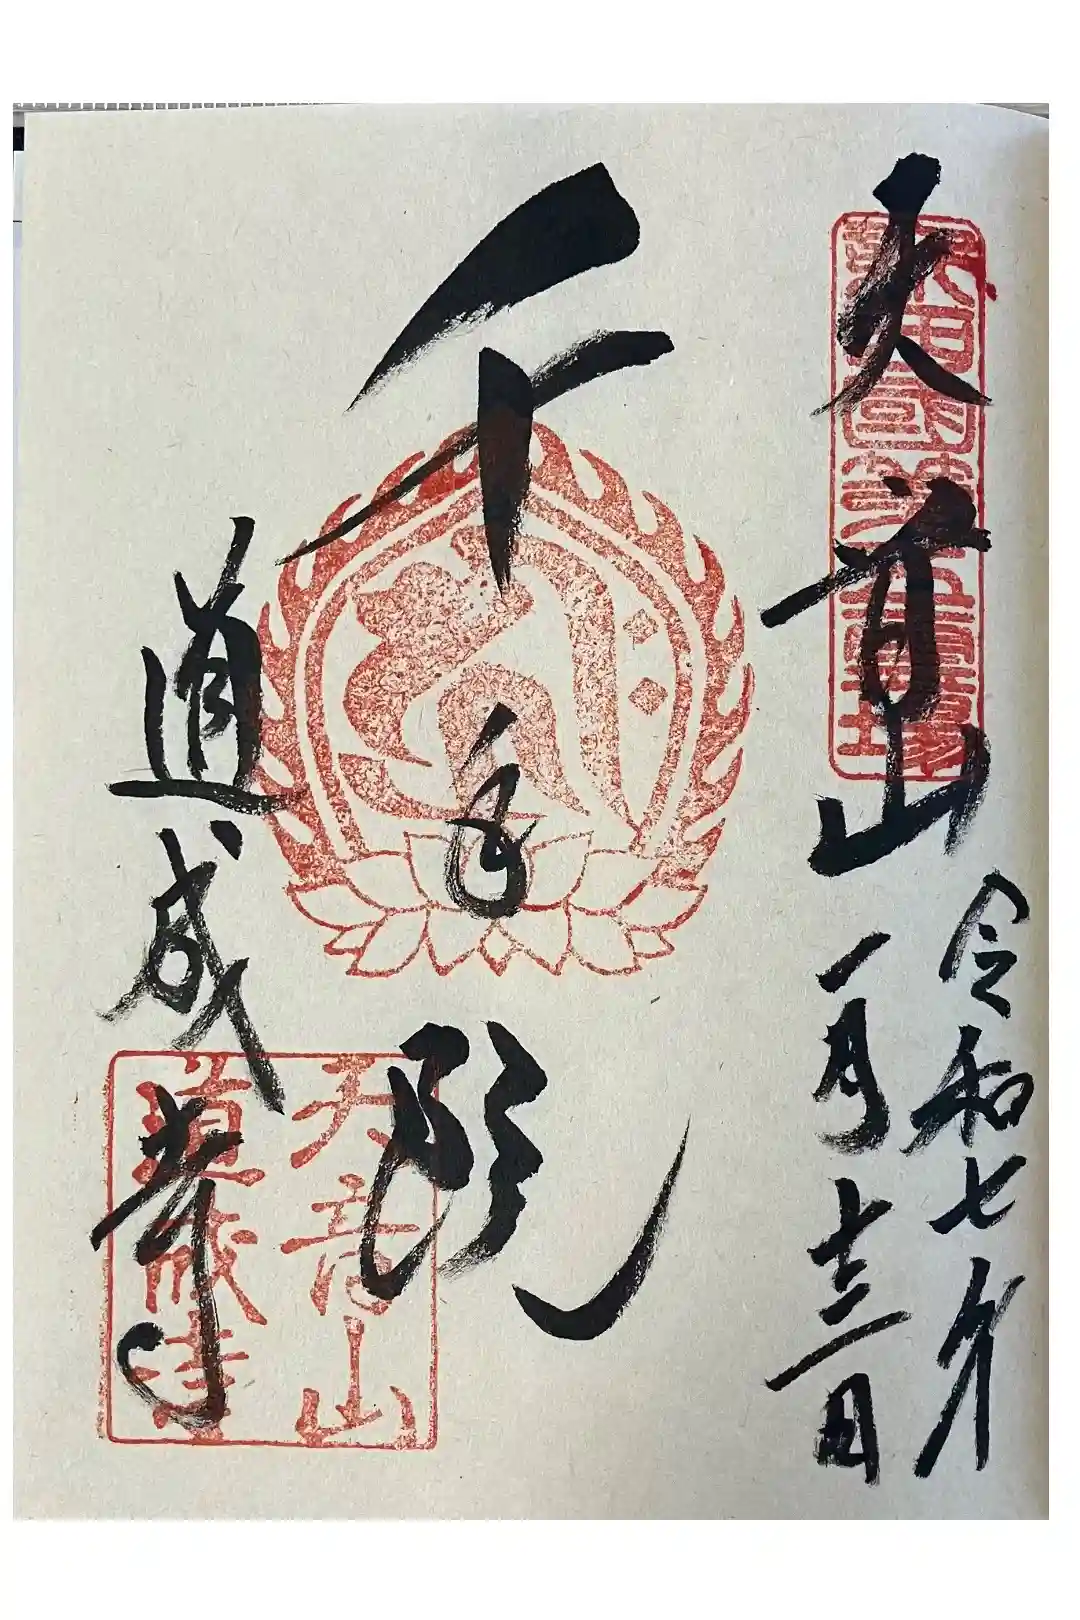 天音山
令和七年
一月十三日
千手
道成寺
天音山
道成寺